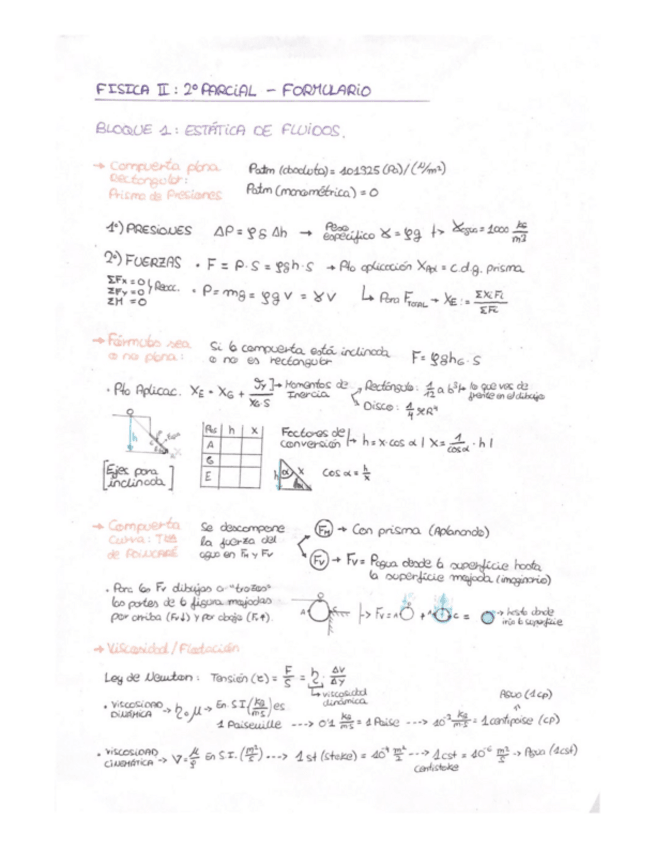 FISICA II: 2º PARCIAL - FORMULARIO
BLOQUE 1: ESTÁTICA DE FLUIDOS.
→ Compuerta plana
Rectangular:
Prisma de Presiones
Patm (absoluta) = 101325 (Pa)/(N/m²)
Patm (manométrica) = 0
1º) PRESIONES ΔP = ρ g Δh → Peso específico γ = ρg
γagua = 1000 kg/m³
2º) FUERZAS · F = P·S = ρgh·S → Pto aplicación XApl = c.d.g. prisma
ΣFx = 0
ΣFy = 0
ΣM = 0
Reac. · P = mg = ρg V = γV
Para FTOTAL → XE := ΣXiFi / ΣFi
→ Fórmula sea
o no plana:
Si la compuerta está inclinada
o no es rectangular
F = ρghG·S
· Pto Aplicac. XE = XG + Iy / XG·S
→ Momentos de Inercia
Rectángulo: 1/12 a b³ → lo que ves de frente en el dibujo
Disco: 1/4 πR⁴
[Ejes para inclinada]
Pos h x
A
G
E
Factores de conversión
h = x·cos α | X = 1/cosα · h |
cos α = h/x
→ Compuerta
Curva:
Se descompone
la fuerza del
agua en FH y FV
FH → Con prisma (Aplanando)
FV → Fv = Pagua desde la superficie hasta
la superficie mojada (imaginario)
· Para la Fv dibujas a "trozos"
las partes de la figura mojadas
por arriba (Fv↓) y por abajo (Fv↑).
A
Fv =
+
=
→ hasta donde
iría la superficie
→ Viscosidad / Flotación
Ley de Newton: Tensión (τ) = F/S = η · Δv/Δy
viscosidad
dinámica
· VISCOSIDAD DINÁMICA → η o μ → En S.I (kg/m·s) es
Agua (1cp)
1 Poiseuille ---> 0'1 kg/m·s = 1 Poise ---> 10⁻³ kg/m·s = 1 centipoise (cp)
· VISCOSIDAD CINEMÁTICA → ν = μ/ρ En S.I. (m²/s) ---> 1 st (stoke) = 10⁻⁴ m²/s ---> 1 cst = 10⁻⁶ m²/s → Agua (1cst)
centistoke